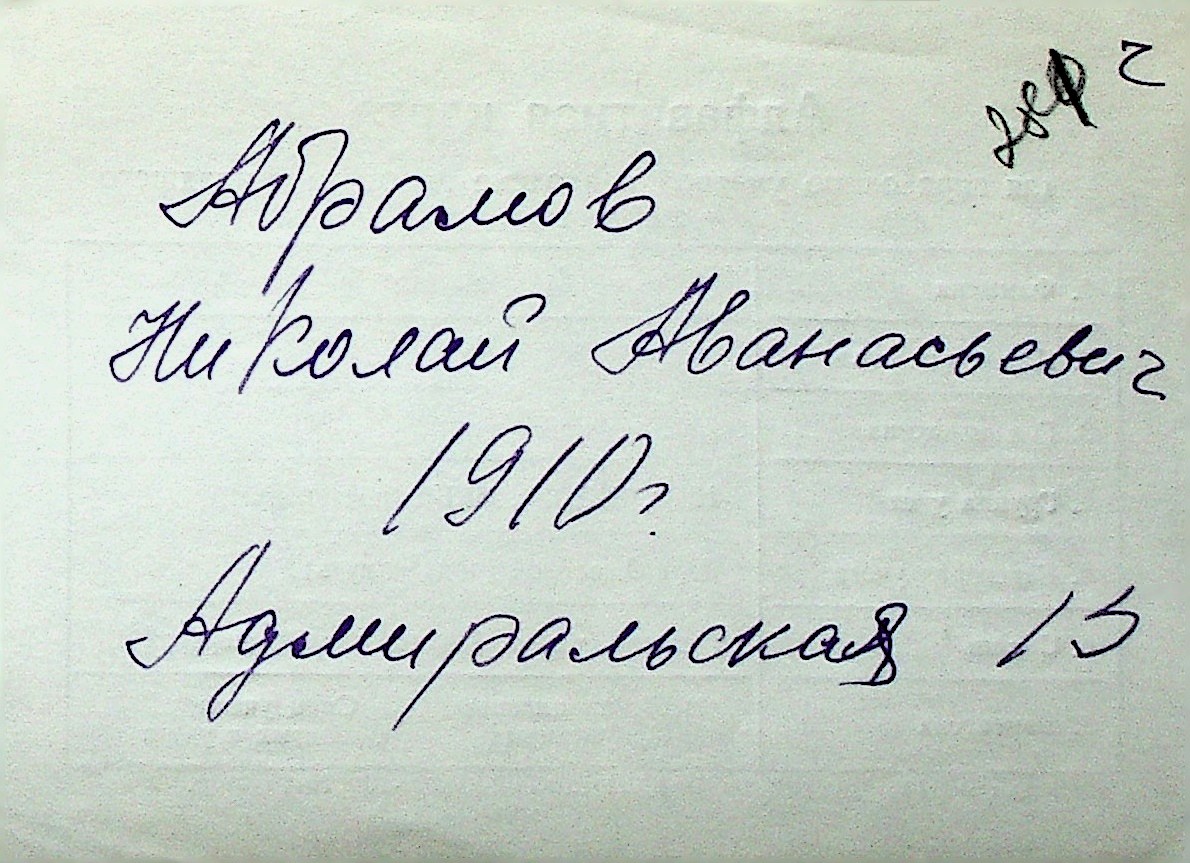 Абрамов
Николай Аванасьевич
1910 г.
Адмиральская 15